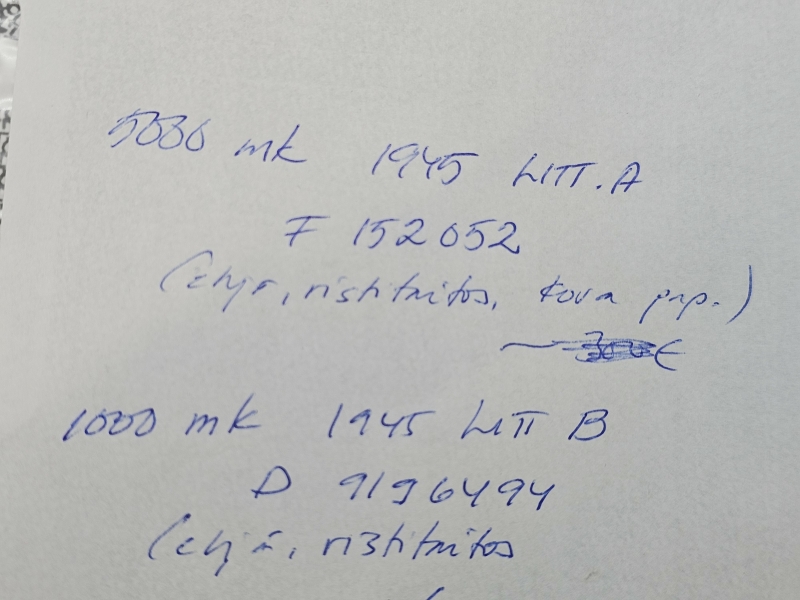 5000 mk 1945 LITT. A
F 152052
(ehjä, ristitaitos, kova pap.)
1000 mk 1945 LITT B
D 9196494
(ehjä, ristitaitos